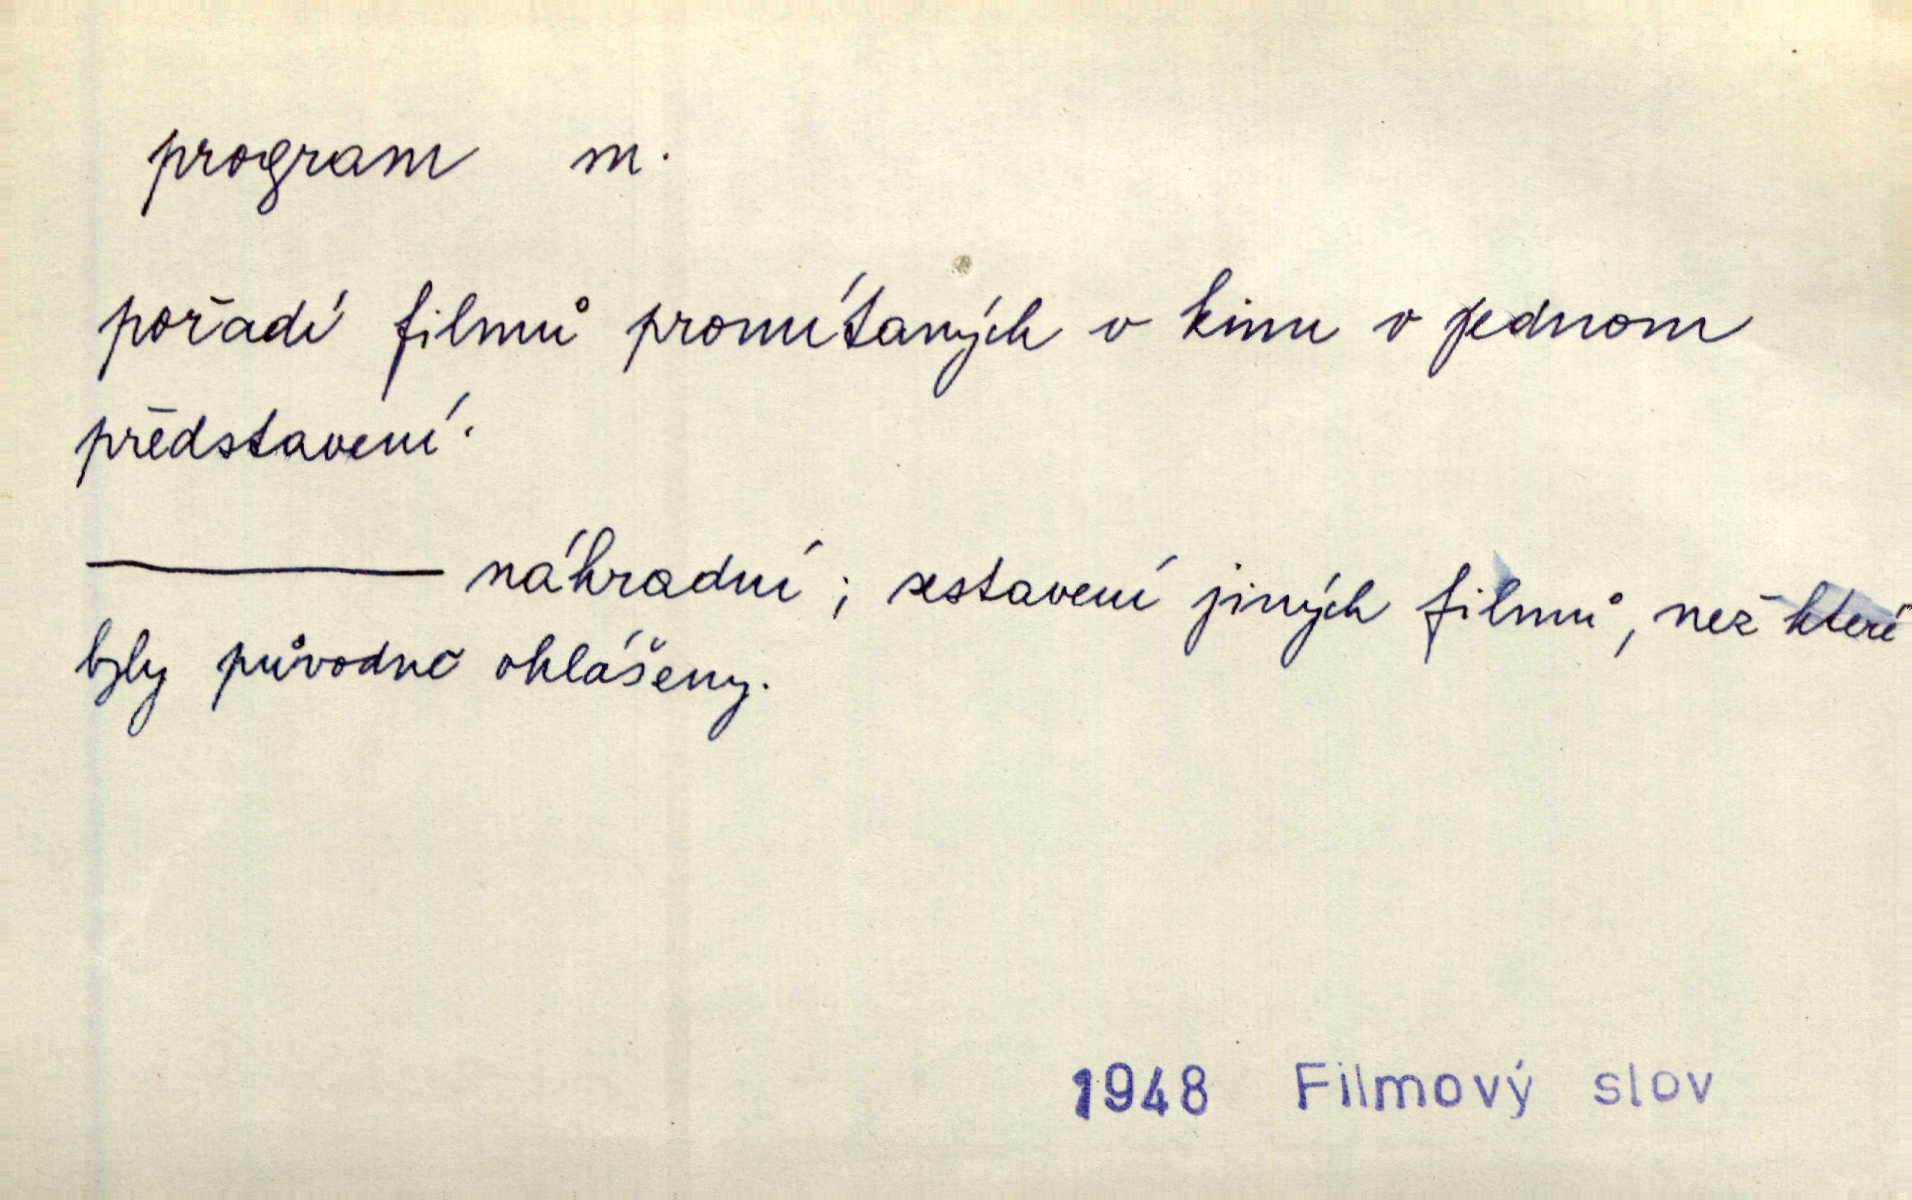 program m.
pořadí filmů promítaných v kinu v jednom
představení.
——— náhradní; sestavení jiných filmů, než které
byly původně ohlášeny.
1948 Filmový slov